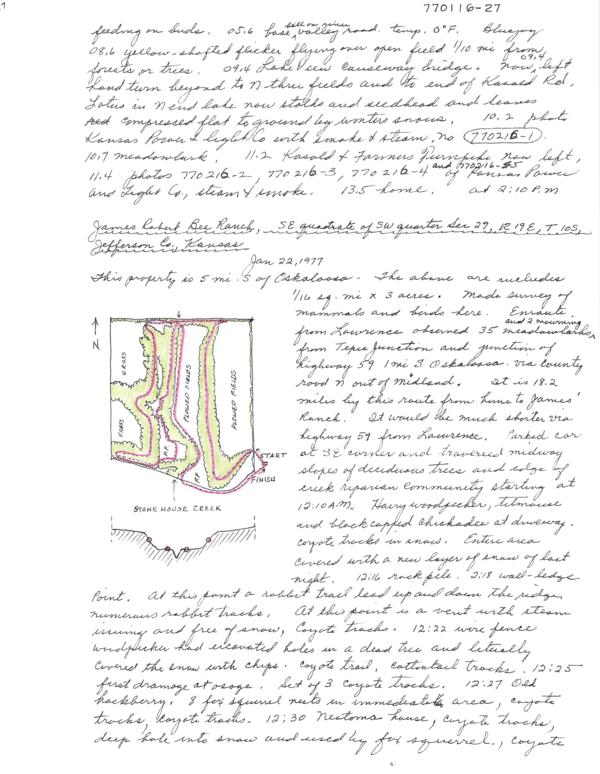 770116-27
feeding on buds. 05.6 base, valley road. temp. 0°F. Bluejay
08.6 yellow-shafted flicker flying over open field 1/10 mi from
forests or trees. 09.4 Lake View causeway bridge. Now, 09.4 left
hand turn beyond to N three fields and to end of Kasold Rd.
Lotus in N end lake now stalks and seedhead and leaves
compressed flat to ground by winters snows. 10.2 photo
Kansas Power & Light Co with smoke & steam, no 770216-1.
10.7 meadowlark. 11.2 Kasold & Farmers Turnpike now left,
11.4 photos 770216-2, 770216-3, 770216-4 and 770216-5 of Kansas Power
and Light Co., steam & smoke. 13.5 home. at 2:10 P.M
James Robert Bee Ranch, SE quadrate of SW quarter Sec 29, R 19E, T 10S,
Jefferson Co., Kansas
Jan 22, 1977
This property is 5 mi. S of Oskaloosa. The above are includes
1/16 sq. mi x 3 acres. Made survey of
mammals and birds here. Enroute
from Lawrence observed 35 meadowlarks, and 2 mourning
from Tepee Junction and junction of
highway 59 1 mi S Oskaloosa via county
road N out of Midland. It is 18.2
miles by this route from home to James'
Ranch. It would be much shorter via
highway 59 from Lawrence. Parked car
at SE corner and traversed midway
slopes of deciduous trees and edge of
creek riparian community starting at
12:10 A.M. Hairy woodpecker, titmouse
and black capped chickadee at driveway.
coyote tracks in snow. Entire area
covered with a new layer of snow of last
night. 12:16 rock pile. 2:18 wall-ledge
N
GRASS
GRASS
PLOWED FIELDS
PLOWED FIELDS
P.F.
P.F.
START
FINISH
STONE HOUSE CREEK
Point. At this point a rabbit trail lead up and down the ridge
numerous rabbit tracks. At this point is a vent with steam
issuing and free of snow, Coyote tracks. 12:22 wire fence
woodpecker had excavated holes in a dead tree and literally
covered the snow with chips. coyote trail, cottontail tracks. 12:25
first drainage at osage. Set of 3 coyote tracks. 12:27 Old
hackberry. 8 fox squirrel nests in immediate area, coyote
tracks, coyote tracks. 12:30 Neotoma house, coyote tracks,
deep hole into snow and used by fox squirrel., coyote